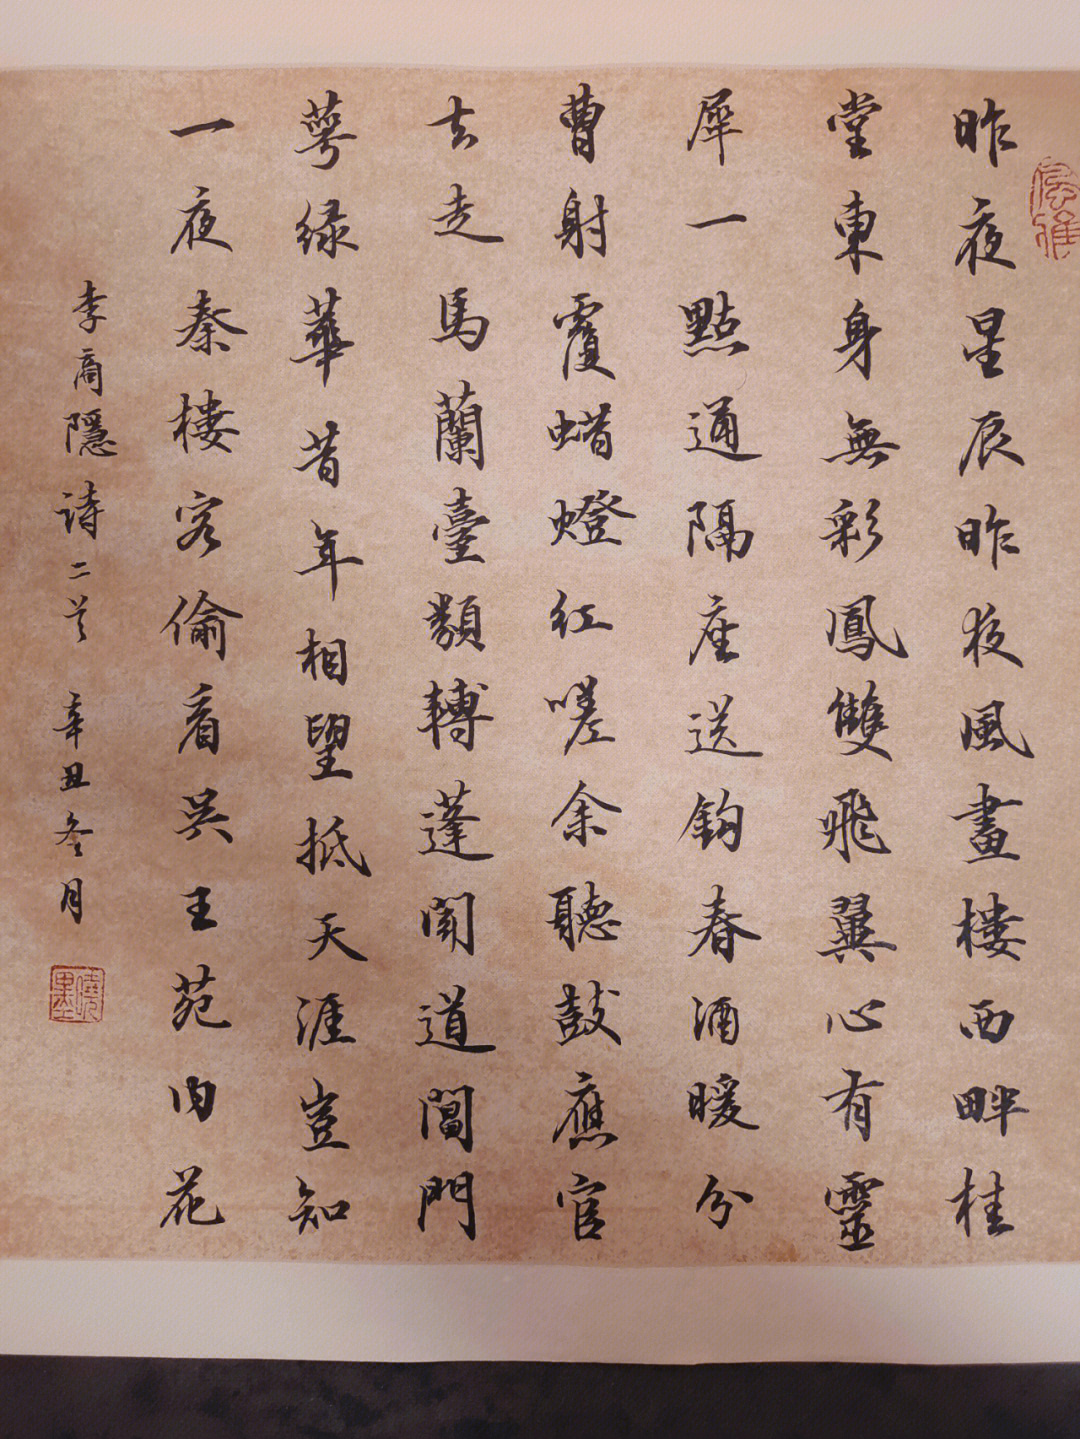 風雅
昨夜星辰昨夜風畫樓西畔桂
堂東身無彩鳳雙飛翼心有靈
犀一點通隔座送鈎春酒暖分
曹射覆蜡燈紅嗟余聽鼓應官
去走馬蘭臺類轉蓬聞道閶門
萼绿華昔年相望抵天涯豈知
一夜秦樓客偷看吳王苑内花
李商隱诗二首 辛丑冬月
曉墨